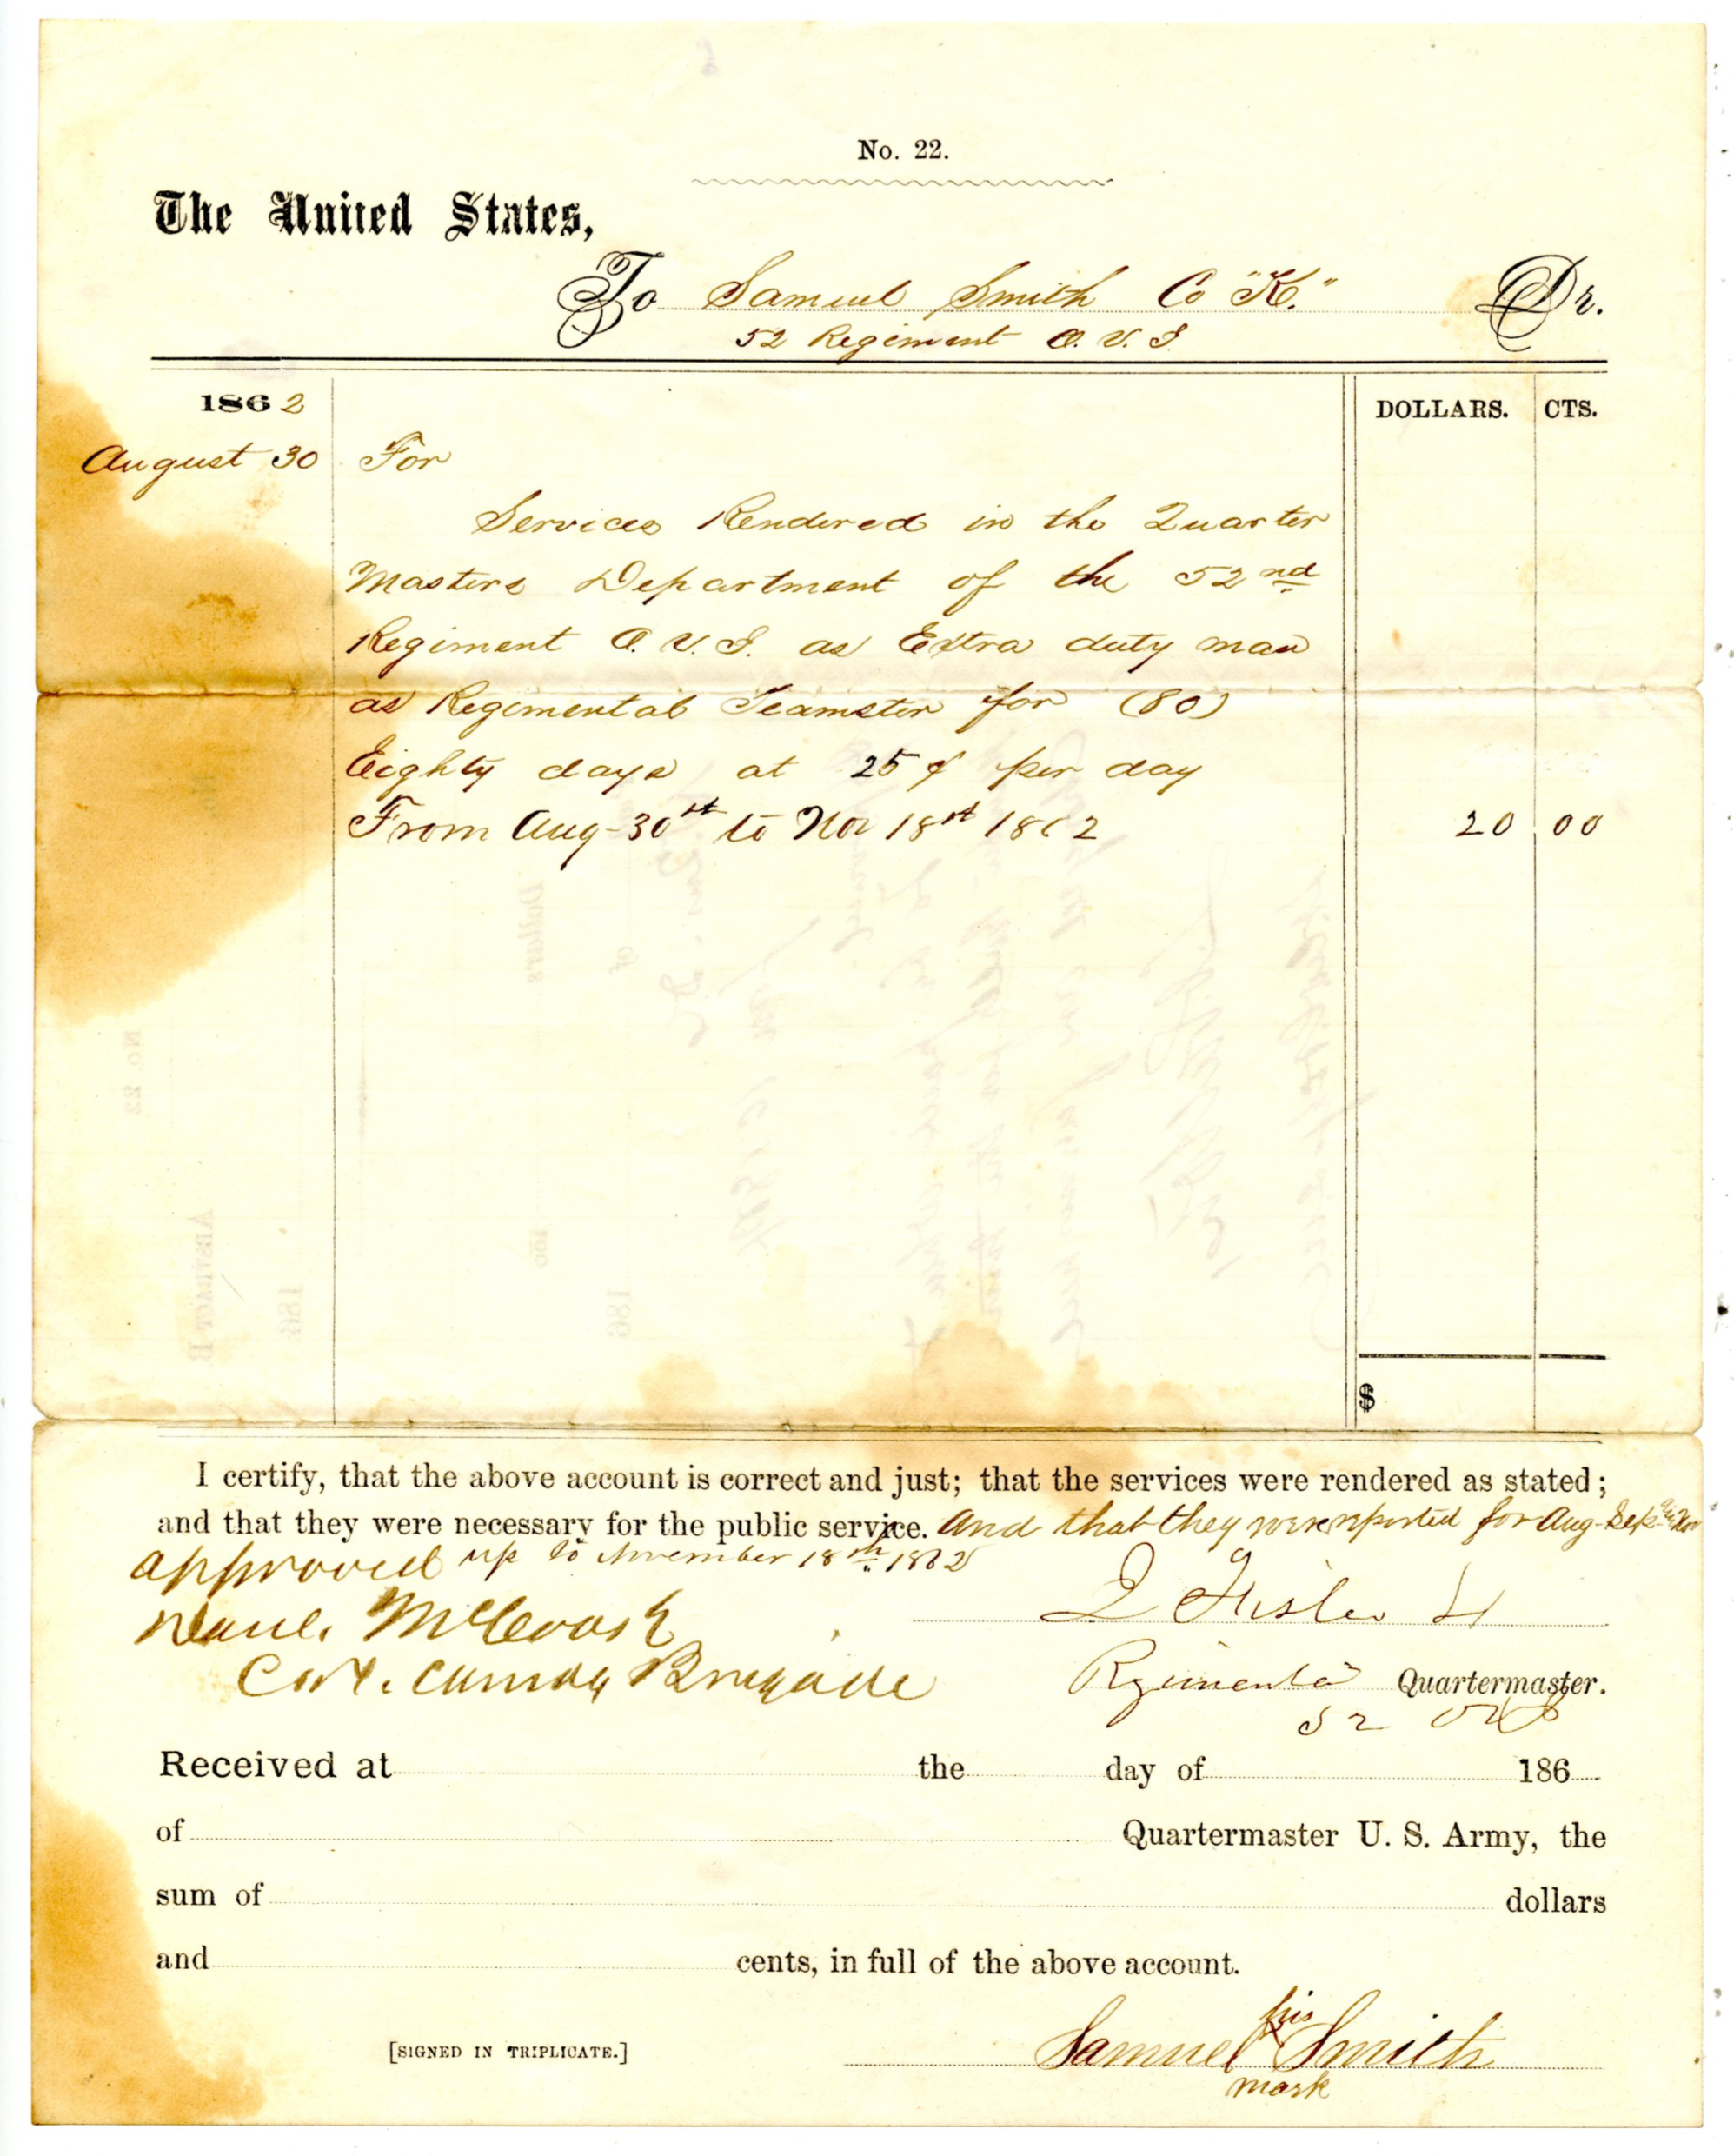 No. 22.
The United States,
To Samuel Smith Co "K." Dr.
52 Regiment O. V. I
1862 DOLLARS. CTS.
August 30 For
Services Rendered in the Quarter
Masters Department of the 52nd
Regiment O. V. I. as Extra duty man
as Regimental Teamster for (80)
Eighty days at 25¢ per day
From Aug-30st to Nov 18st 1862 20 00
$
I certify, that the above account is correct and just; that the services were rendered as stated;
and that they were necessary for the public service. And that they were reported for Aug- Sep- & Nov
approved up to November 18th 1862
Danl. McCook
Col. Comdg Brigade Regimental Quartermaster.
52
Received at the day of 186
of Quartermaster U. S. Army, the
sum of dollars
and cents, in full of the above account.
his
[SIGNED IN TRIPLICATE.] Samuel X Smith
mark